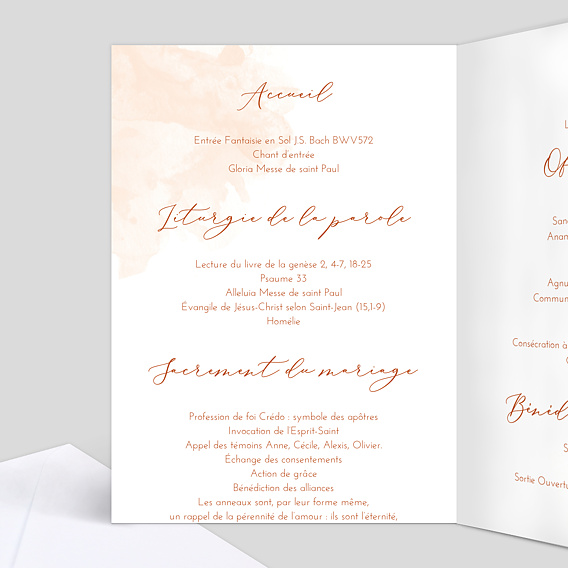 Accueil
Entrée Fantaisie en Sol J.S. Bach BWV572
Chant d'entrée
Gloria Messe de saint Paul
Liturgie de la parole
Lecture du livre de la genèse 2, 4-7, 18-25
Psaume 33
Alleluia Messe de saint Paul
Évangile de Jésus-Christ selon Saint-Jean (15,1-9)
Homélie
Sacrement du mariage
Profession de foi Crédo : symbole des apôtres
Invocation de l'Esprit-Saint
Appel des témoins Anne, Cécile, Alexis, Olivier.
Échange des consentements
Action de grâce
Bénédiction des alliances
Les anneaux sont, par leur forme même,
un rappel de la pérennité de l'amour : ils sont l'éternité,
L
Of
San
Anam
Agnu
Commun
Consécration à
Bénéd
S
Sortie Ouvertu